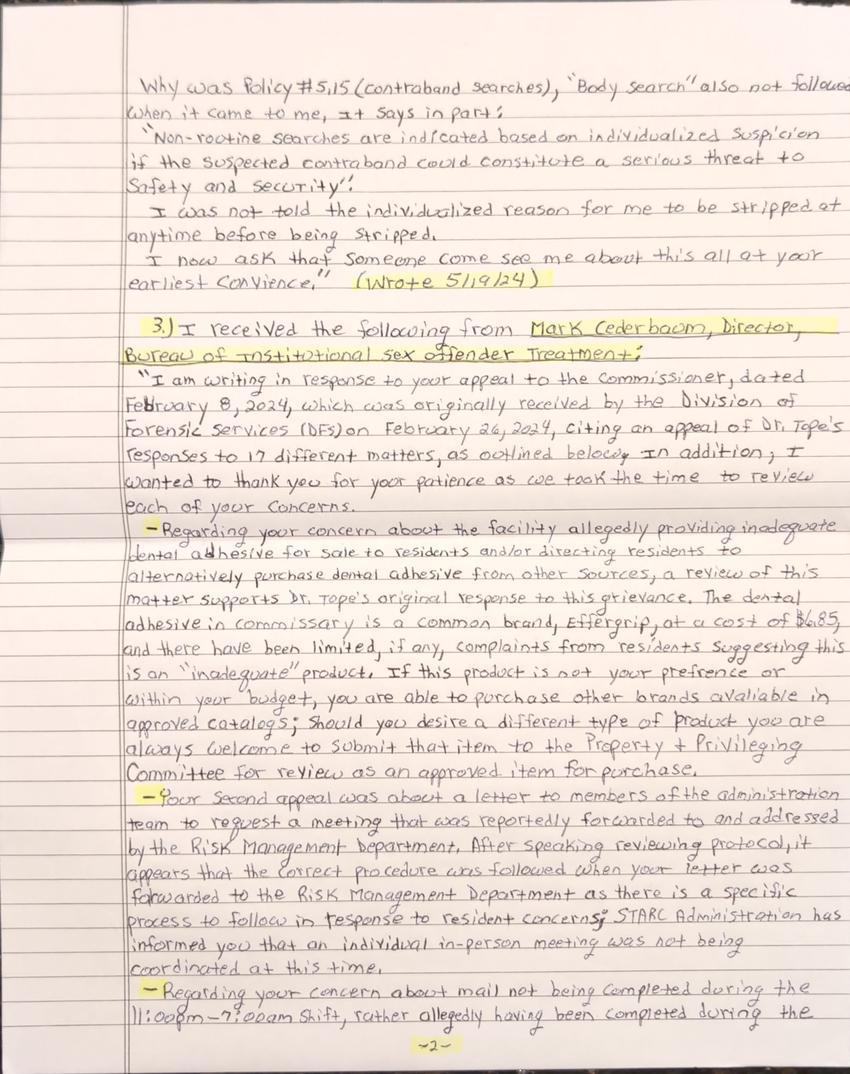 Why was Policy #5.15 (contraband searches), "Body search" also not followed
when it came to me, It says in part:
"Non-routine searches are indicated based on individualized suspicion
if the suspected contraband could constitute a serious threat to
Safety and security".
I was not told the individualized reason for me to be stripped at
anytime before being stripped.
I now ask that someone come see me about this all at your
earliest convience." (Wrote 5/19/24)
3.) I received the following from Mark Cederbaum, Director,
Bureau of Institutional sex offender Treatment:
"I am writing in response to your appeal to the commissioner, dated
February 8, 2024, which was originally received by the Division of
Forensic Services (DFS) on February 26, 2024, citing an appeal of Dr. Tope's
responses to 17 different matters, as outlined below, In addition, I
wanted to thank you for your patience as we took the time to review
each of your concerns.
- Regarding your concern about the facility allegedly providing inadequate
dental adhesive for sale to residents and/or directing residents to
alternatively purchase dental adhesive from other sources, a review of this
matter supports Dr. Tope's original response to this grievance. The dental
adhesive in commissary is a common brand, Effergrip, at a cost of $6.85,
and there have been limited, if any, complaints from residents suggesting this
is an "inadequate" product. If this product is not your prefrence or
within your budget, you are able to purchase other brands avaliable in
approved catalogs; Should you desire a different type of product you are
always welcome to submit that item to the Property + Privileging
Committee for review as an approved item for purchase.
- Your second appeal was about a letter to members of the administration
team to request a meeting that was reportedly forwarded to and addressed
by the Risk Management Department. After speaking reviewing protocol, it
appears that the correct procedure was followed when your letter was
forwarded to the Risk Management Department as there is a specific
process to follow in response to resident concerns; STARC Administration has
informed you that an individual in-person meeting was not being
coordinated at this time.
- Regarding your concern about mail not being completed during the
11:00pm-7:00am Shift, rather allegedly having been completed during the
-2-